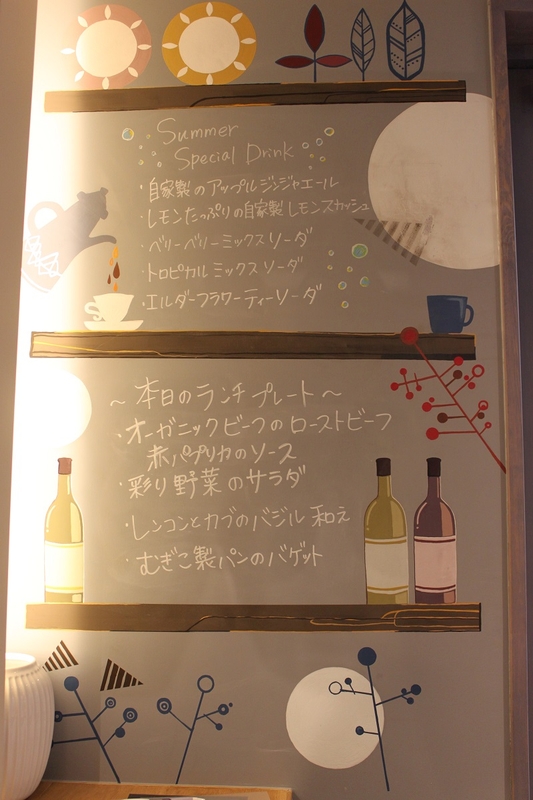 Summer
Special Drink
・自家製のアップルジンジャエール
・レモンたっぷりの自家製レモンスカッシュ
・ベリーベリーミックスソーダ
・トロピカルミックスソーダ
・エルダーフラワーティーソーダ
～本日のランチプレート～
・オーガニックビーフのローストビーフ
赤パプリカのソース
・彩り野菜のサラダ
・レンコンとカブのバジル和え
・むぎこ製パンのバゲット